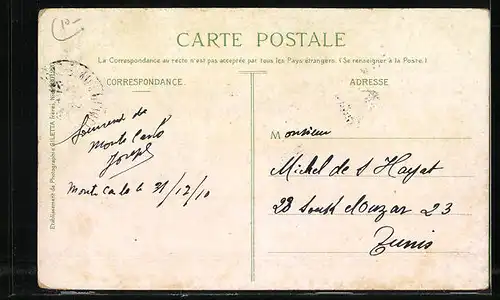 10-
CARTE POSTALE
La Correspondance au recto n'est pas acceptée par tous les Pays étrangers. (Se renseigner à la Poste.)
CORRESPONDANCE.
ADRESSE
Etablissement de Photographie GILETTA frères, Nice
Souvenir de
Monte Carlo
Joseph
Monte Carlo le 21/12/10
Monsieur
Michel de S Hayat
23 Souk el
23
Tunis